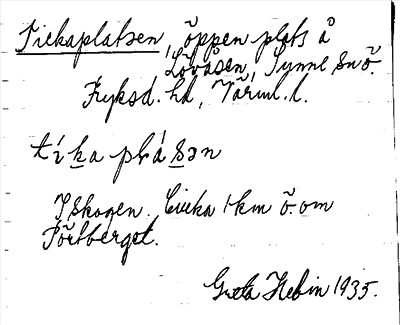 Tiekaplatsen, öppen plats å
Lövåsen, Sunne Sn ö.
Fryksd. hd, Värml. l.
tíka plásən
I skogen. Cirka 1 km ö. om
Törtberget.
Greta Hebin 1935.